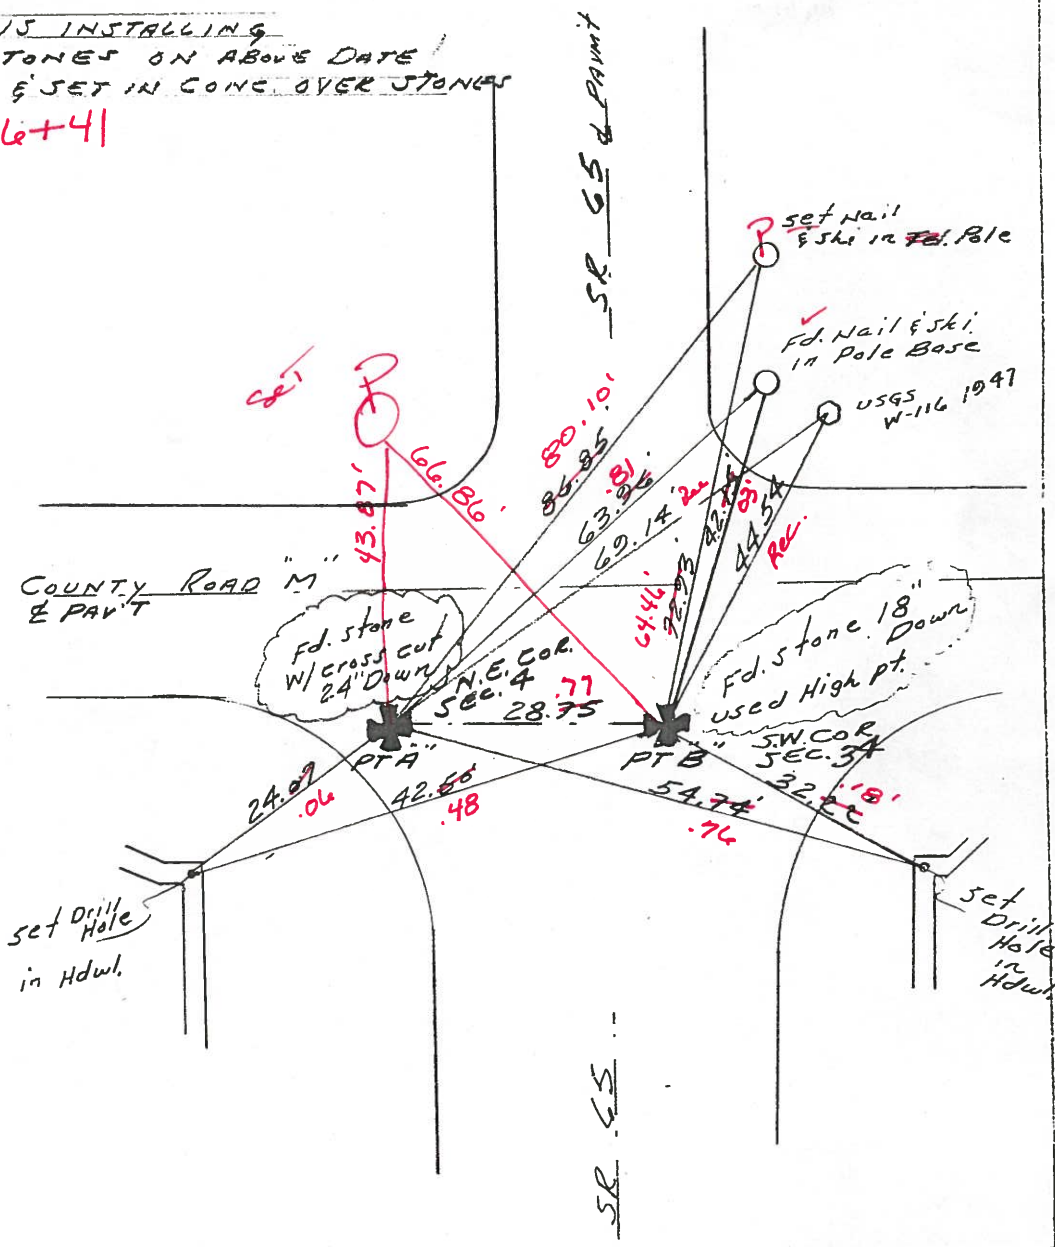 IS INSTALLING
TONES ON ABOVE DATE
& SET IN CONC. OVER STONES
6+41
SR 65 & PAVMT
P
set Nail
& ski in Fd. Pole
✓
Fd. Nail & ski
in Pole Base
USGS
W-116 1947
set
P
80.10'
86.85
.81
63.96
69.14'
66.86'
43.87'
42.
44.54
Rec.
64.46'
72.93
COUNTY ROAD "M"
& PAV'T
Fd. stone
w/ cross cut
24" Down
Fd. stone 18"
Down
used High pt.
N.E. COR.
SEC. 4
.77
28.75
S.W. COR
SEC. 34
PT "A"
PT "B"
24.07
.06
42.50
.48
54.74'
.76
32.22
'18'
set Drill
Hole
in Hdwl.
set
Drill
Hole
in
Hdwl.
SR 65